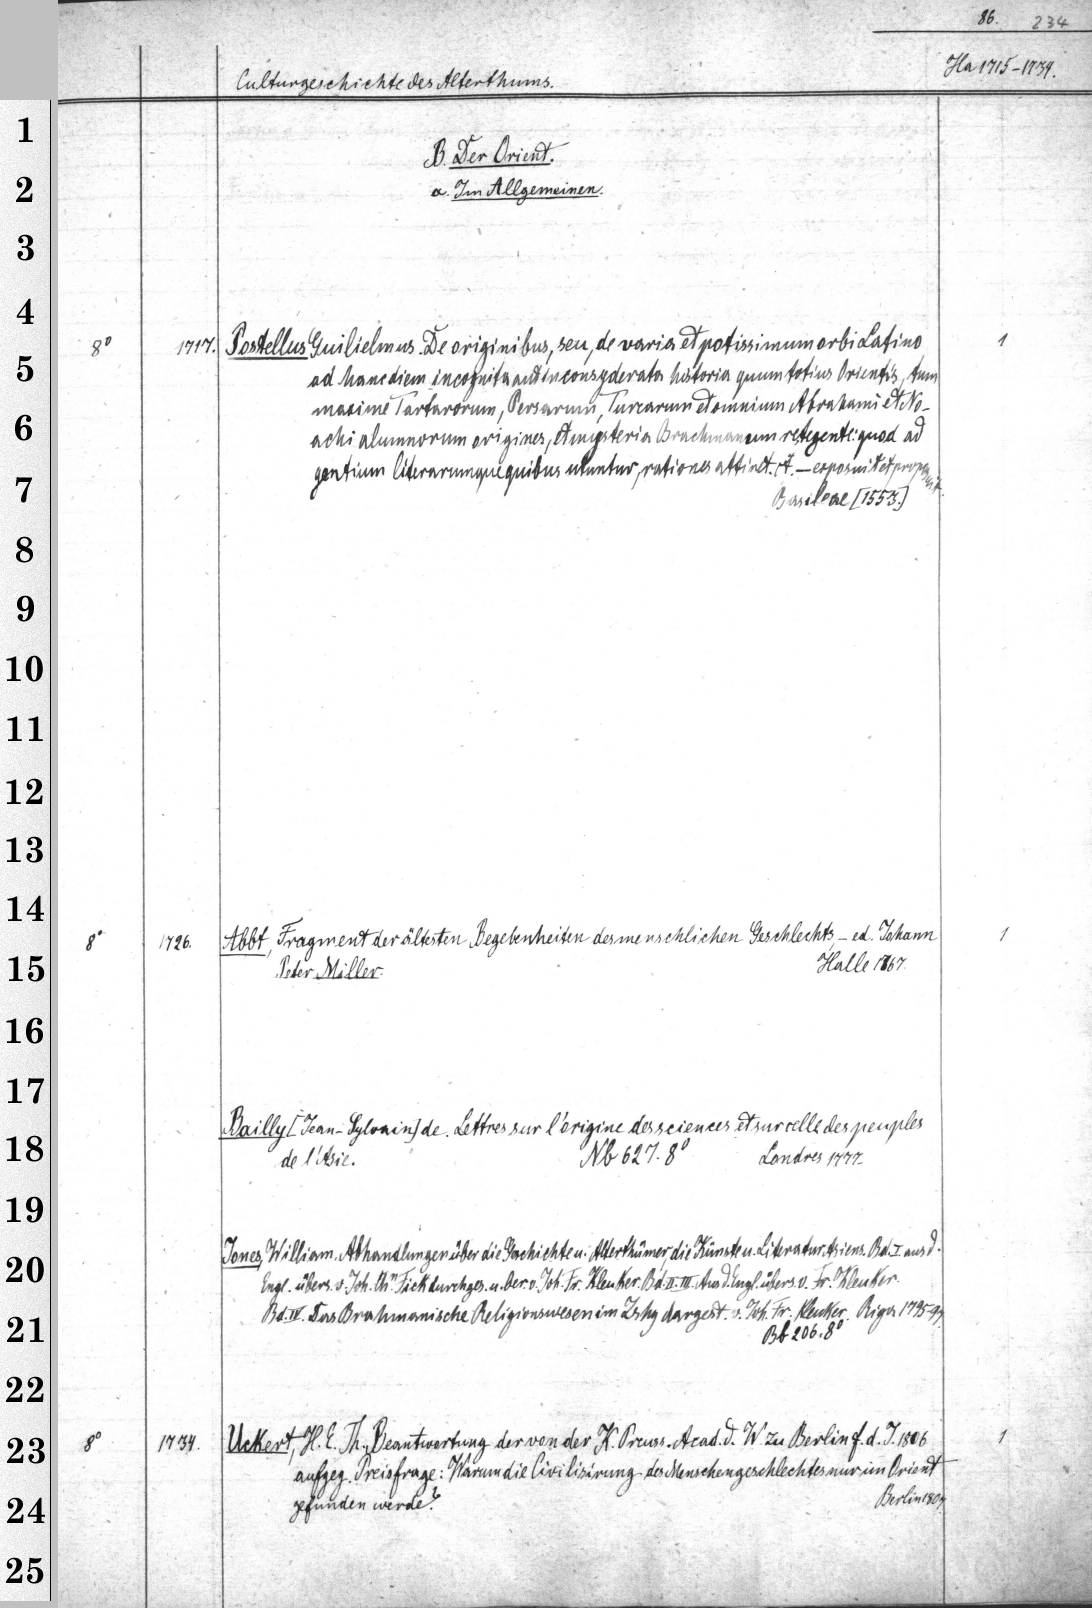 86. 234
Culturgeschichte des Alterthums. Ha 1715-1739.
1
B. Der Orient.
2
a. Im Allgemeinen.
3
4
8° 1717. Postellus Guilielmus. De originibus, seu, de varia et potissimum orbi Latino 1
5
ad hanc diem incognita aut inconsyderata historia quum totius Orientis, tum
maxime Tartarorum, Persarum, Turcarum et omnium Abrahami et No-
6
achi alumnorum origines, et mysteria Brachmanum retegente: quod ad
gentium literarumque quibus utuntur, rationes attinet. – exposuit et proposuit.
7
Basileae [1553.]
8
9
10
11
12
13
14
8° 1726. Abbt, Fragment der ältesten Begebenheiten des menschlichen Geschlechts, – ed. Johann 1
15
Peter Miller. Halle 1767.
16
17
Bailly [Jean-Sylvain] de. Lettres sur l'origine des sciences et sur celle des peuples
18
de l'Asie. Nb 627. 8° Londres 1777.
19
Jones, William. Abhandlungen über die Geschichte u. Alterthümer, die Künste u. Literatur Asiens. Bd. I aus d.
20
Engl. übers. v. Joh. Th. Fick durchges. u. ber. v. Joh. Fr. Kleuker. Bd. II-III Aus d. Engl. übers. v. Fr. Kleuker.
Bd. IV. Das Brahmanische Religionswesen im Zshg dargest. v. Joh. Fr. Kleuker. Riga 1795-97
21
Bb 206. 8°
22
8° 1734. Uckert, H. E. Th., Beantwortung der von der K. Preuss. Acad. d. W. zu Berlin f. d. J. 1806 1
23
aufgeg. Preisfrage: Warum die Civilisirung des Menschengeschlechtes nur im Orient
gefunden werde? Berlin 1807
24
25